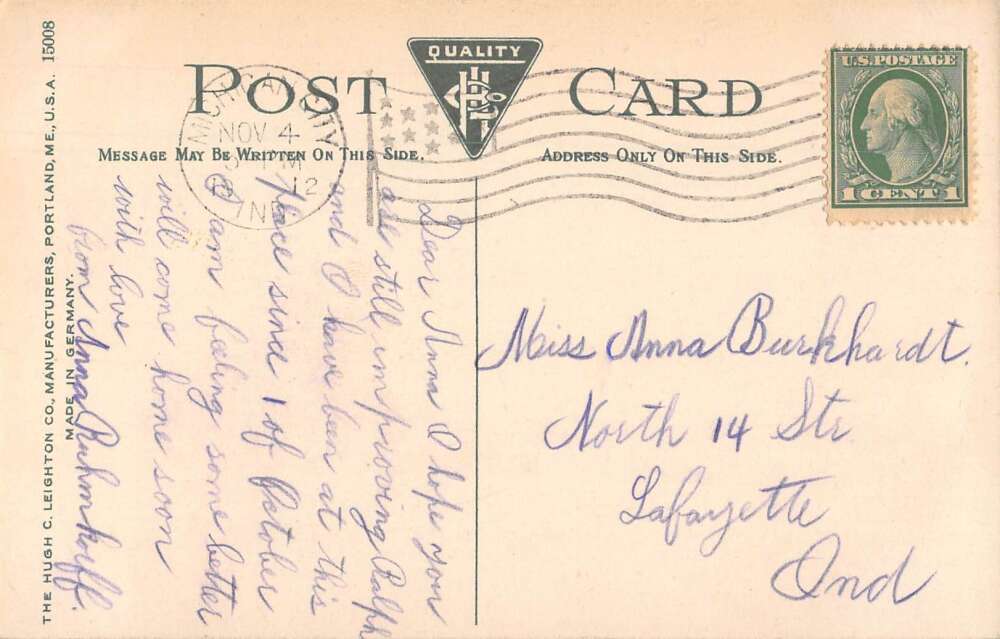 POST CARD
QUALITY
MESSAGE MAY BE WRITTEN ON THIS SIDE.
ADDRESS ONLY ON THIS SIDE.
MICHIGAN CITY
NOV 4
M
12
IND
U.S. POSTAGE
1 CENT 1
THE HUGH C. LEIGHTON CO., MANUFACTURERS, PORTLAND, ME., U.S.A. 15008
MADE IN GERMANY.
Dear Anna I hope you
are still improving Ralph
and I have been at this
Place since 1 of October
I am feeling some better
will come home soon
with love
from Anna Ruhmkorff.
Miss Anna Burkhardt.
North 14 Str
Lafayette
Ind